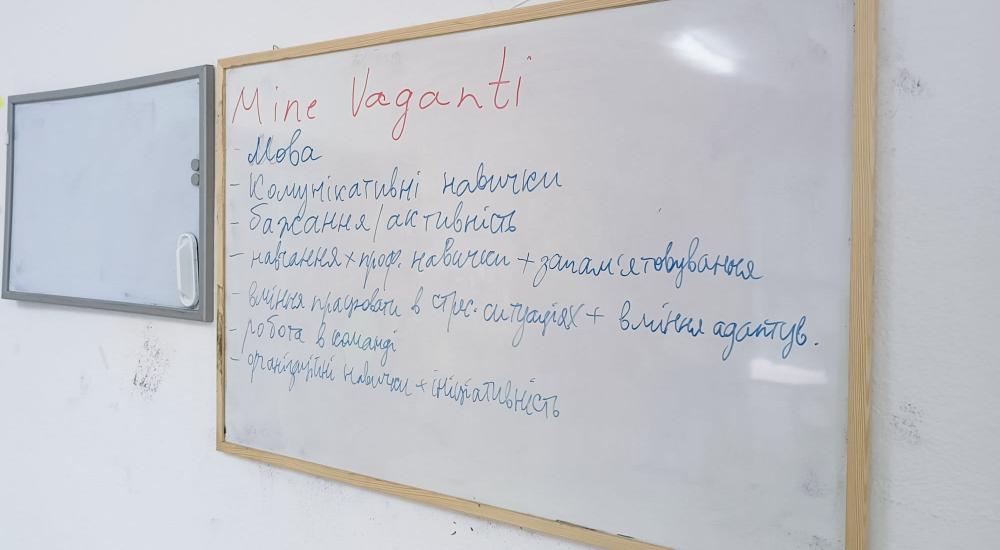 Mine Vaganti
- Мова
- Комунікативні навички
- бажання/активність
- навчання х проф. навички + запам'ятовування
- вміння працювати в стрес. ситуаціях + вміння адаптув.
- робота в команді
- організаційні навички + ініціативність